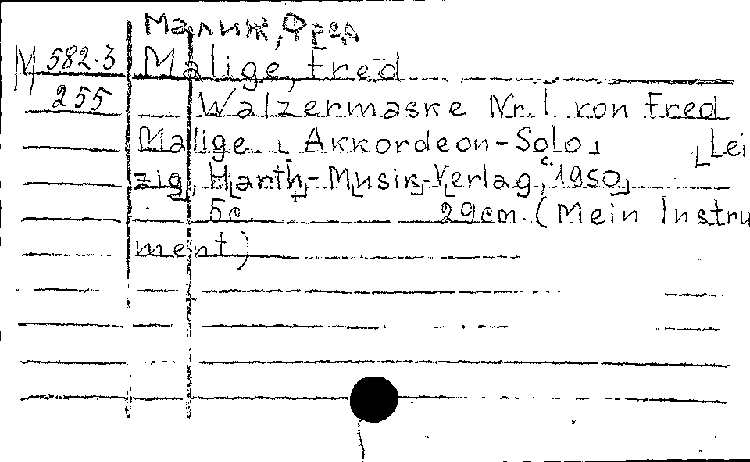 Малиж, Фред
М 582-3 Malige, Fred
255 Walzermaske Nr. 1 von Fred
Malige. Akkordeon-Solo. Lei
zig, Harth-Musik-Verlag, 1950,
5c 29cm. (Mein Instru
ment)